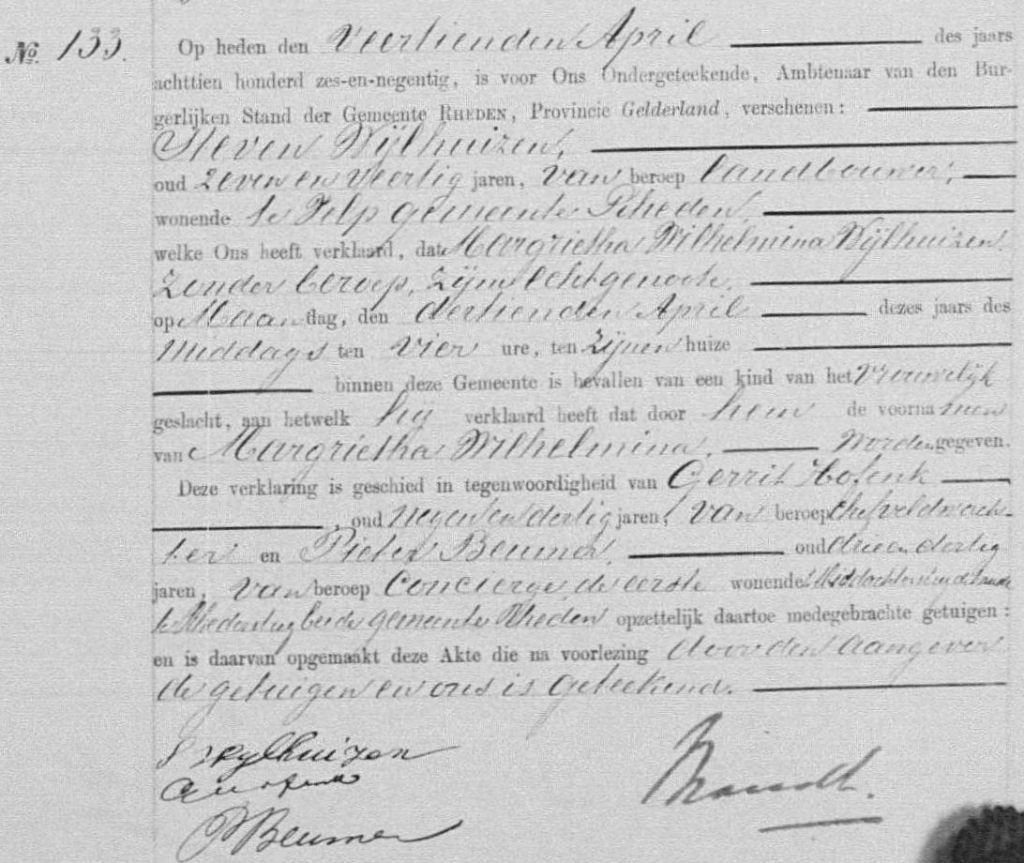 No. 133.
Op heden den Veertienden April des jaars
achttien honderd zes-en-negentig, is voor Ons Ondergeteekende, Ambtenaar van den Bur-
gerlijken Stand der Gemeente RHEDEN, Provincie Gelderland, verschenen:
Steven Wijlhuizen,
oud zeven en veertig jaren, van beroep landbouwer,
wonende te Velp gemeente Rheden,
welke Ons heeft verklaard, dat Margrietha Wilhelmina Wijlhuizen
zonder beroep, zijne echtgenoote,
op Maandag, den dertienden April dezes jaars des
middags ten vier ure, ten zijnen huize
binnen deze Gemeente is bevallen van een kind van het vrouwelijk
geslacht, aan hetwelk hij verklaard heeft dat door hem de voornamen
van Margrietha Wilhelmina, worden gegeven.
Deze verklaring is geschied in tegenwoordigheid van Gerrit Hofenk
, oud negen en dertig jaren, van beroep chefveldwach-
ter en Pieter Beumer, oud drie en dertig
jaren, van beroep Concierge, de eerste wonende te Middachtersteeg de tweede
te Rhedersteeg beide gemeente Rheden opzettelijk daartoe medegebrachte getuigen:
en is daarvan opgemaakt deze Akte die na voorlezing door den aangever
de getuigen en ons is geteekend.
S Wylhuizen
G Hofenk
P Beumer
Brandt.